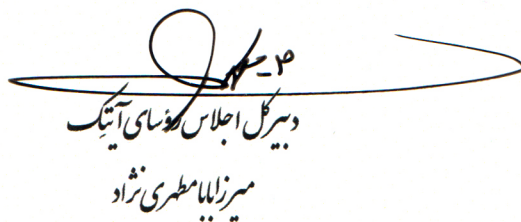 دبیرکل اجلاس رؤسای آیتک
میرزابابا مطهری نژاد